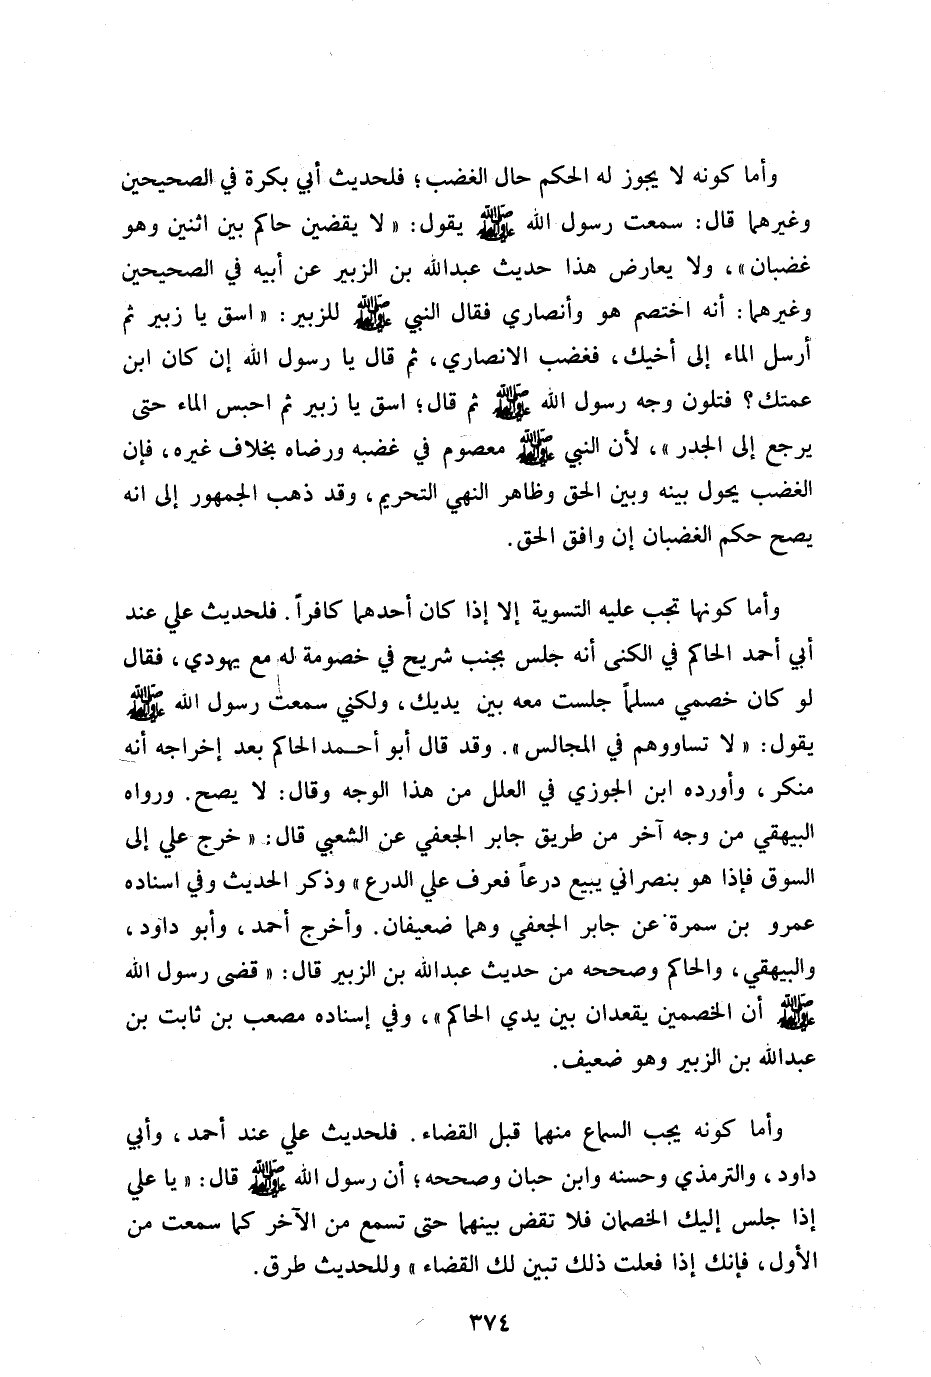 وأما كونه لا يجوز له الحكم حال الغضب؛ فلحديث أبي بكرة في الصحيحين
وغيرهما قال: سمعت رسول الله ﷺ يقول: « لا يقضين حاكم بين اثنين وهو
غضبان»، ولا يعارض هذا حديث عبدالله بن الزبير عن أبيه في الصحيحين
وغيرهما: أنه اختصم هو وأنصاري فقال النبي ﷺ للزبير: « اسق يا زبير ثم
أرسل الماء إلى أخيك، فغضب الانصاري، ثم قال يا رسول الله إن كان ابن
عمتك؟ فتلون وجه رسول الله ﷺ ثم قال؛ اسق يا زبير ثم احبس الماء حتى
يرجع إلى الجدر »، لأن النبي ﷺ معصوم في غضبه ورضاه بخلاف غيره، فإن
الغضب يحول بينه وبين الحق وظاهر النهي التحريم، وقد ذهب الجمهور إلى انه
يصح حكم الغضبان إن وافق الحق.
وأما كونها تجب عليه التسوية إلا إذا كان أحدهما كافراً. فلحديث علي عند
أبي أحمد الحاكم في الكنى أنه جلس بجنب شريح في خصومة له مع يهودي، فقال
لو كان خصمي مسلماً جلست معه بين يديك، ولكني سمعت رسول الله ﷺ
يقول: « لا تساووهم في المجالس». وقد قال أبو أحمد الحاكم بعد إخراجه أنه
منكر، وأورده ابن الجوزي في العلل من هذا الوجه وقال: لا يصح. ورواه
البيهقي من وجه آخر من طريق جابر الجعفي عن الشعبي قال: « خرج علي إلى
السوق فإذا هو بنصراني يبيع درعاً فعرف علي الدرع» وذكر الحديث وفي اسناده
عمرو بن سمرة عن جابر الجعفي وهما ضعيفان. وأخرج أحمد، وأبو داود،
والبيهقي، والحاكم وصححه من حديث عبدالله بن الزبير قال: « قضى رسول الله
ﷺ أن الخصمين يقعدان بين يدي الحاكم»، وفي إسناده مصعب بن ثابت بن
عبدالله بن الزبير وهو ضعيف.
وأما كونه يجب السماع منهما قبل القضاء. فلحديث علي عند أحمد، وأبي
داود، والترمذي وحسنه وابن حبان وصححه؛ أن رسول الله ﷺ قال: « يا علي
إذا جلس إليك الخصمان فلا تقض بينهما حتى تسمع من الآخر كما سمعت من
الأول، فإنك إذا فعلت ذلك تبين لك القضاء » وللحديث طرق.
٣٧٤